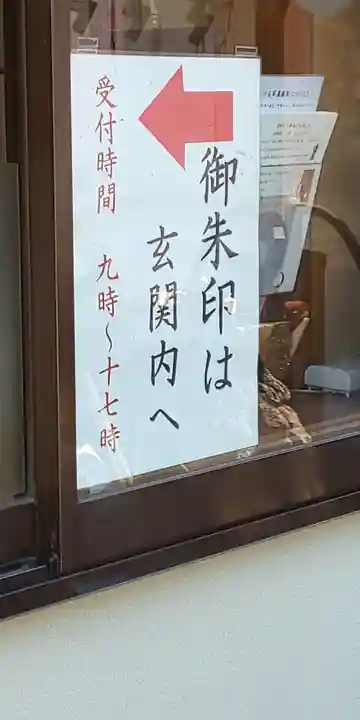 御朱印は
玄関内へ
受付時間　九時～十七時